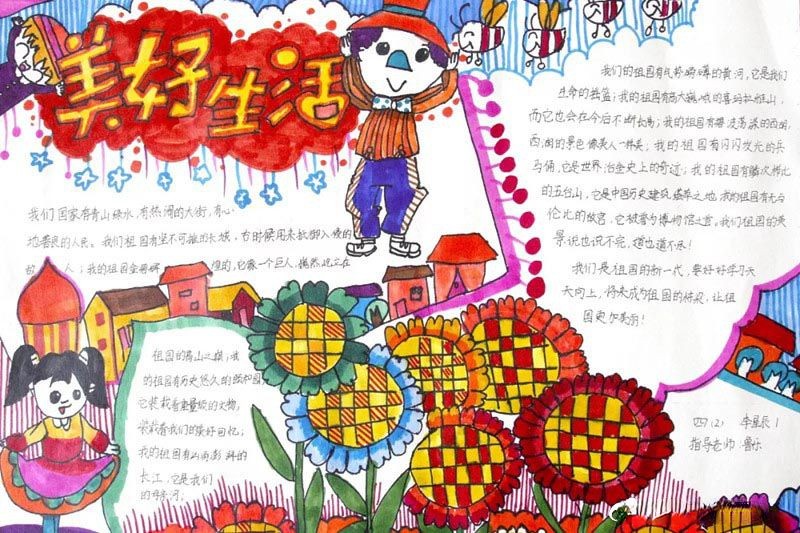 美好生活
我们国家有青山绿水，有热闹的大街，有心
地善良的人民。我们祖国有坚不可摧的长城，古时候用来抵御入侵的
人；我的祖国
的，它像一个巨人，巍然屹立在
祖国的青山之巅；我
的祖国有历史悠久的颐和园，
它装载着重量级的文物，
装载着我们的美好回忆；
我的祖国有汹涌澎湃的
长江，它是我们
的母亲河。
我们的祖国有气势磅礴的黄河，它是我们
生命的摇篮；我的祖国有高大巍峨的喜马拉雅山，
而它也会在今后不断长高；我的祖国有碧波荡漾的西湖，
西湖的景色像美人一样美；我的祖国有闪闪发光的兵
马俑，它是世界冶金史上的奇迹；我的祖国有鳞次栉比
的五台山，它是中国历史建筑荟萃之地，我的祖国有无与
伦比的故宫，它被誉为博物馆之宫。我们祖国的美
景说也说不完，道也道不尽！
我们是祖国的新一代，要好好学习天
天向上，将来成为祖国的栋梁，让祖
国更加美丽！
四(2) 李星辰
指导老师：鲁乐